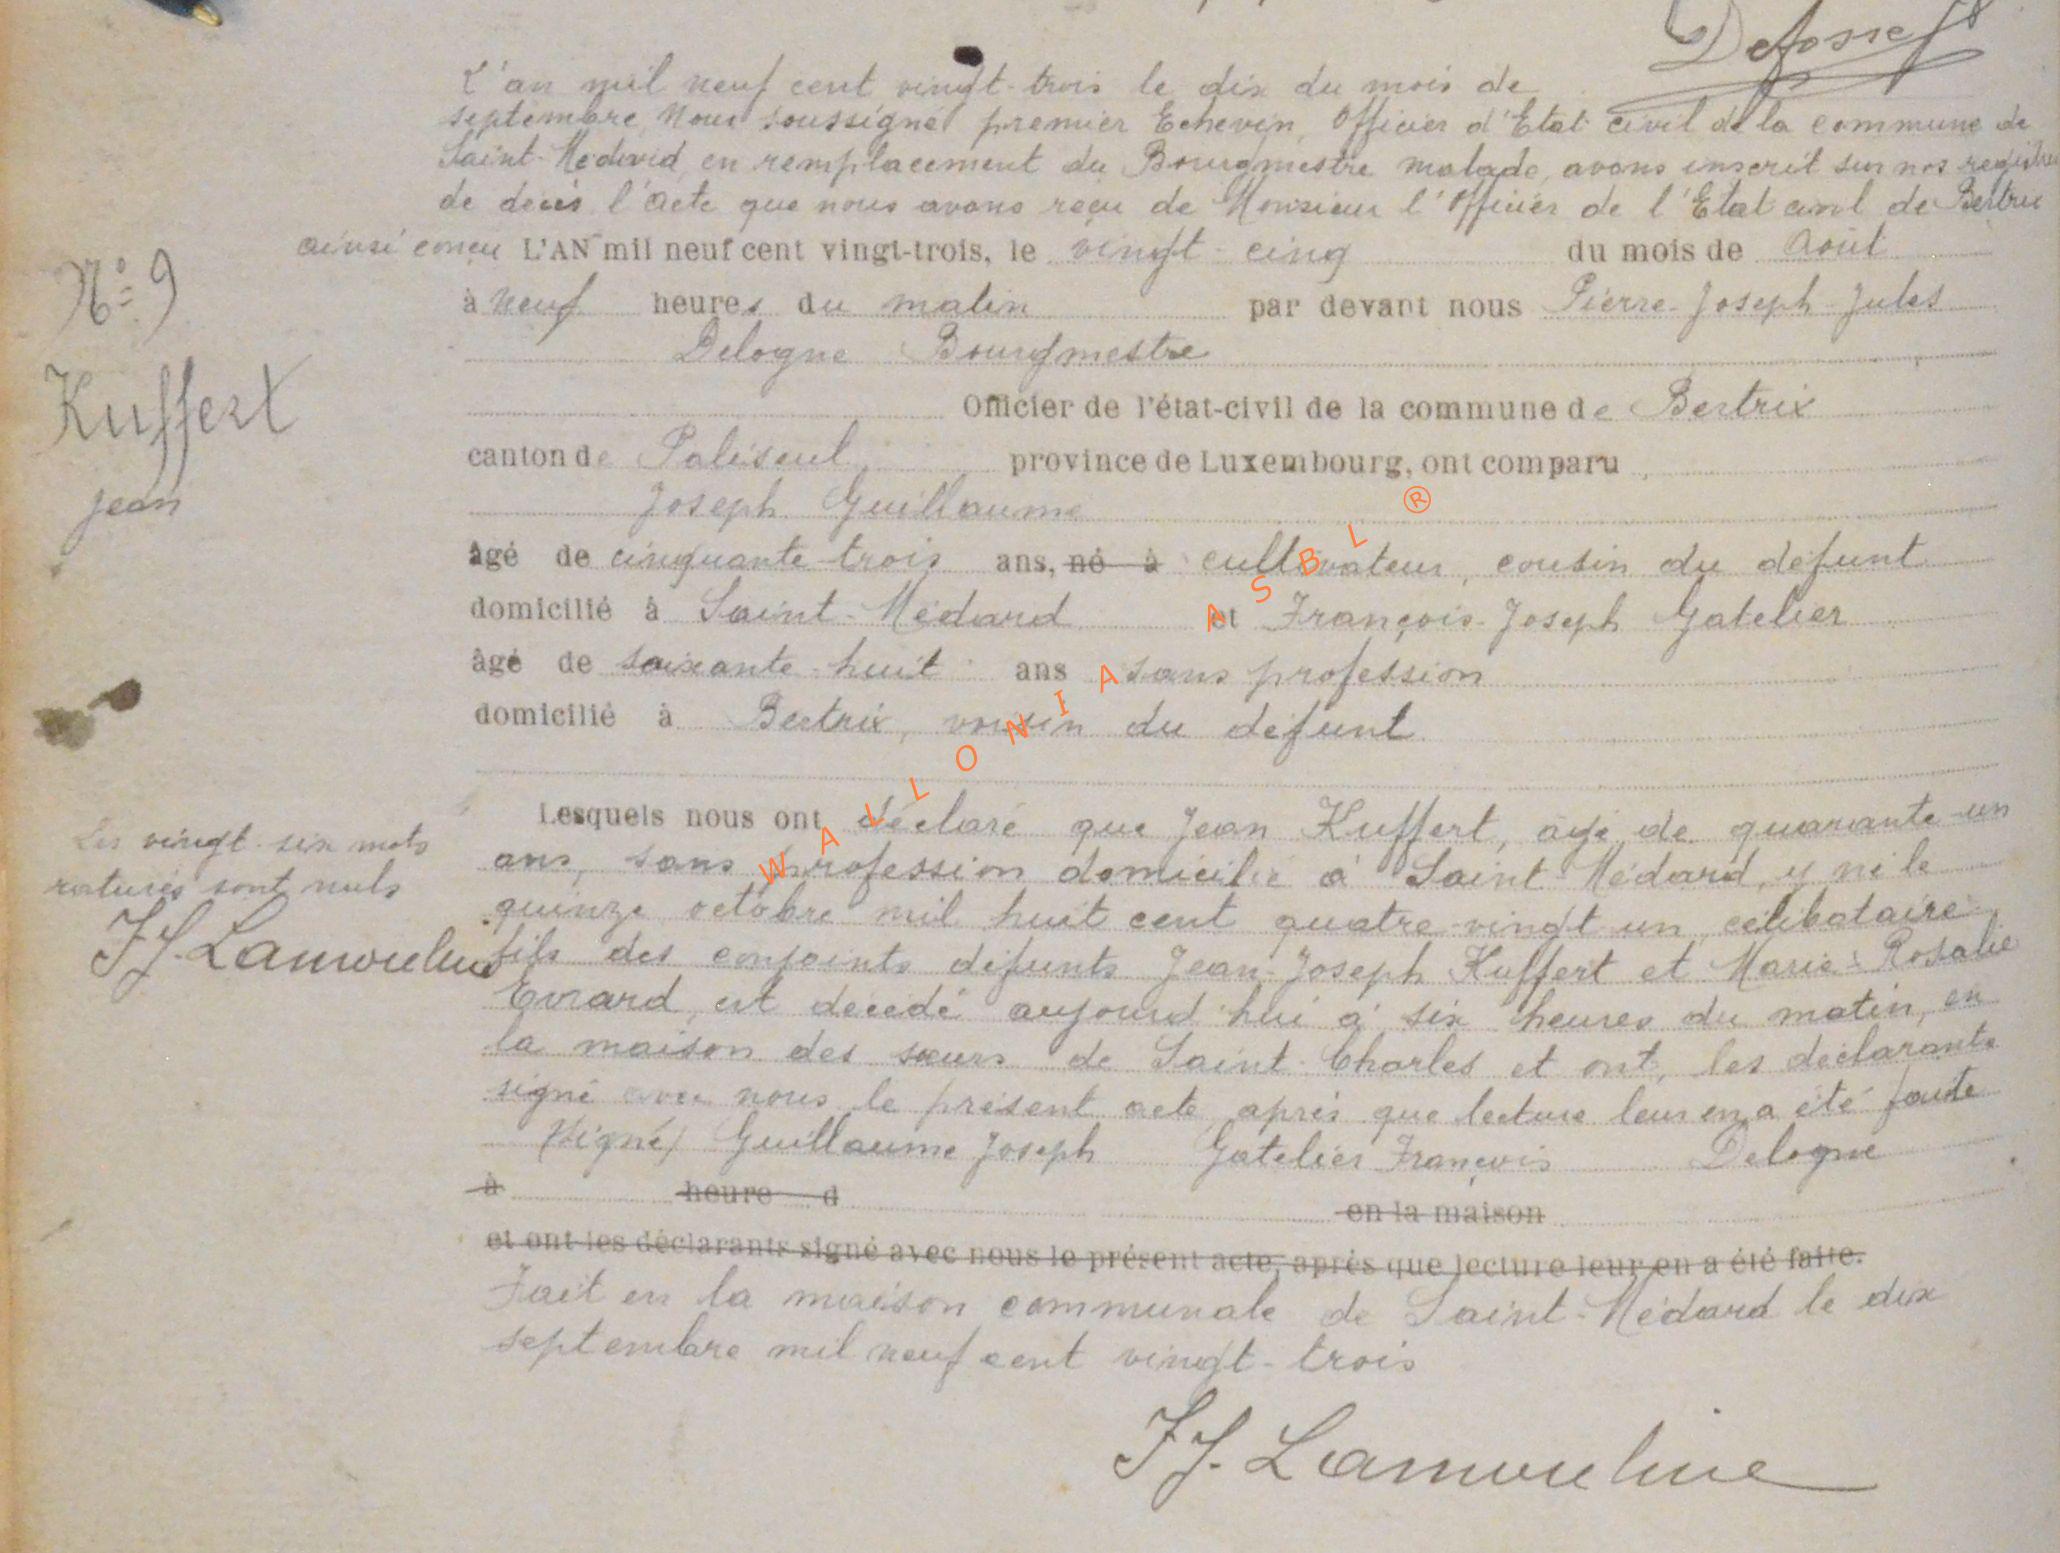 Defosse
L'an mil neuf cent vingt-trois le dix du mois de
septembre, Nous soussigné premier Echevin, Officier d'Etat civil de la commune de
Saint-Médard, en remplacement du Bourgmestre malade, avons inscrit sur nos registres
de décès l'acte que nous avons reçu de Monsieur l'Officier de l'Etat civil de Bertrix
ainsi conçu L'AN mil neuf cent vingt-trois, le vingt-cinq du mois de Août
N° 9
à neuf heures du matin par devant nous Pierre-Joseph-Jules
Delogne Bourgmestre
Kuffert
Officier de l'état-civil de la commune de Bertrix
canton de Paliseul province de Luxembourg, ont comparu
Jean
Joseph Guillaume
âgé de cinquante-trois ans, né à cultivateur, cousin du défunt
domicilié à Saint-Médard et François-Joseph Gatelier
âgé de soixante-huit ans sans profession
domicilié à Bertrix, voisin du défunt
WALLONIA ASBL ®
Lesquels nous ont déclaré que Jean Kuffert, âgé de quarante-un
Les vingt-six mots
ans, sans profession domicilié à Saint Médard, y né le
raturés sont nuls
quinze octobre mil huit cent quatre-vingt-un, célibataire
J.J. Lamouline
fils des conjoints défunts Jean-Joseph Kuffert et Marie-Rosalie
Evrard, est décédé aujourd'hui à six heures du matin, en
la maison des sœurs de Saint-Charles et ont, les déclarants
signé avec nous le présent acte, après que lecture leur en a été faite
(Signé) Guillaume Joseph Gatelier François Delogne
à heure d en la maison
et ont les déclarants signé avec nous le présent acte, après que lecture leur en a été faite.
Fait en la maison communale de Saint-Médard le dix
septembre mil neuf cent vingt-trois
J.J. Lamouline